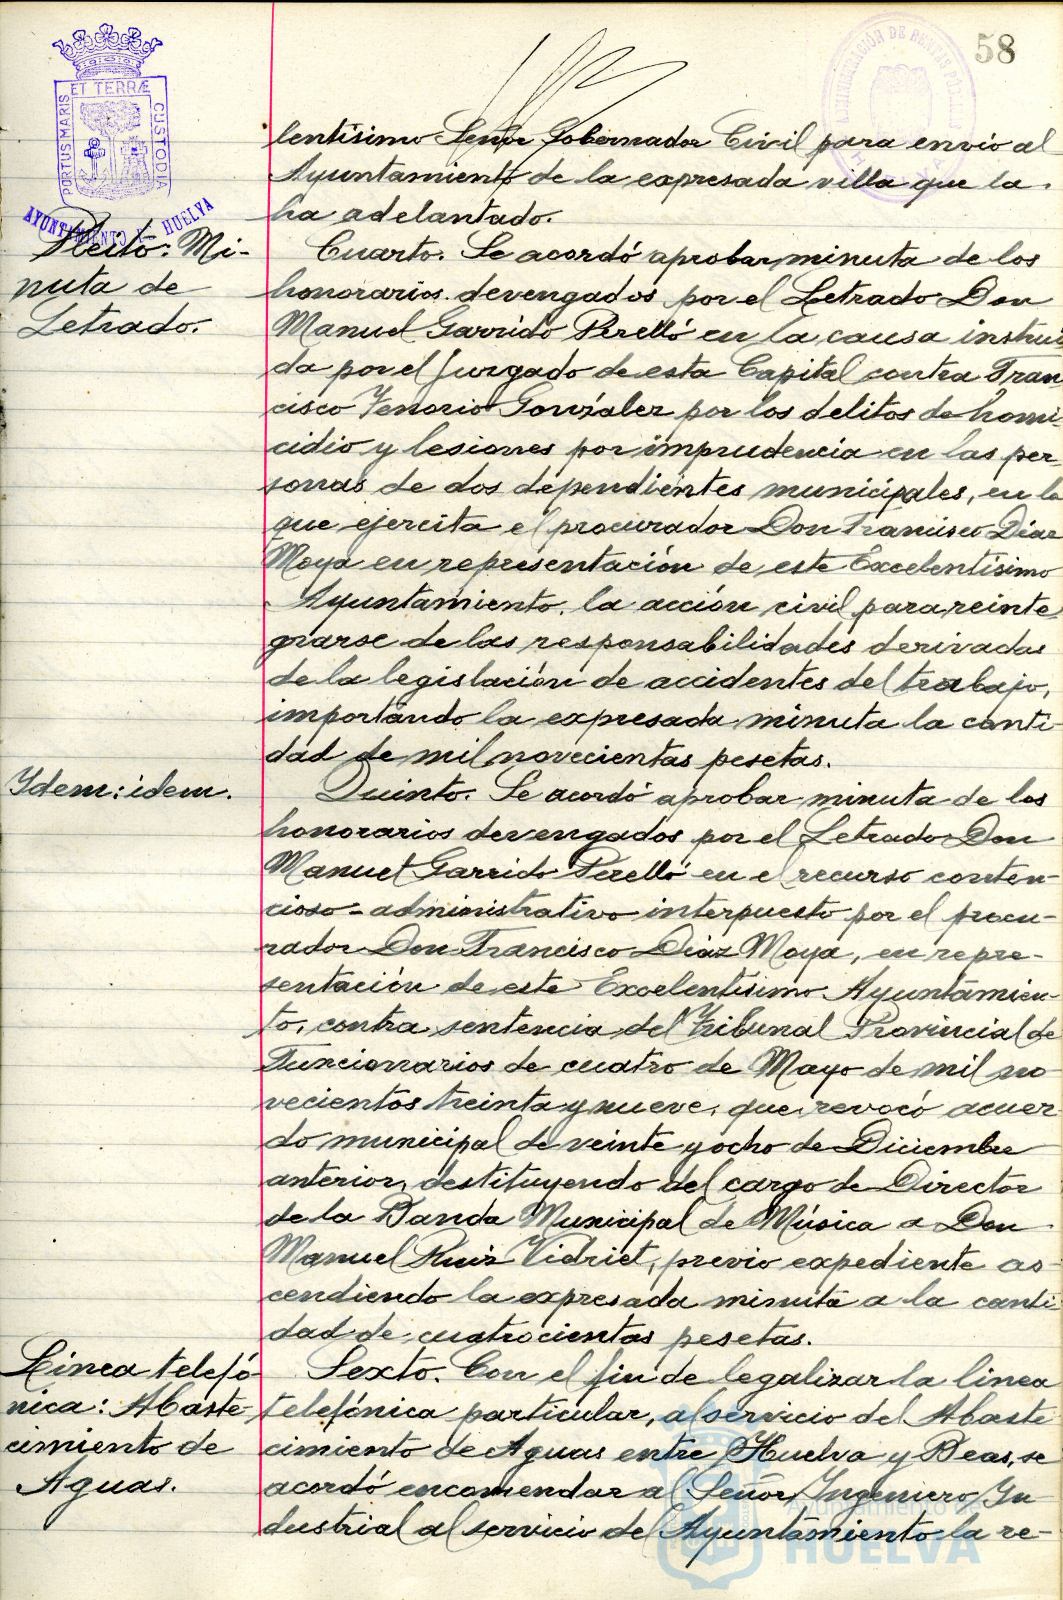 58
ET TERRÆ
PORTUS MARIS
CUSTODIA
AYUNTAMIENTO DE HUELVA
lentísimo Señor Gobernador Civil para envío al
Ayuntamiento de la expresada villa que la
ha adelantado.
Pleito: Mi-
nuta de
Letrado.
Cuarto. Se acordó aprobar minuta de los
honorarios devengados por el Letrado Don
Manuel Garrido Perelló en la causa instrui
da por el Juzgado de esta Capital contra Fran
cisco Tenorio González por los delitos de homi-
cidio y lesiones por imprudencia en las per
sonas de dos dependientes municipales, en la
que ejercita el procurador Don Francisco Díaz
Moya en representación de este Excelentísimo
Ayuntamiento, la acción civil para reinte
grarse de las responsabilidades derivadas
de la legislación de accidentes del trabajo,
importando la expresada minuta la canti-
dad de mil novecientas pesetas.
Idem: idem.
Quinto. Se acordó aprobar minuta de los
honorarios devengados por el Letrado Don
Manuel Garrido Perelló en el recurso conten-
cioso-administrativo interpuesto por el procu-
rador Don Francisco Díaz Moya, en repre-
sentación de este Excelentísimo Ayuntamien-
to, contra sentencia del Tribunal Provincial de
Funcionarios de cuatro de Mayo de mil no
vecientos treinta y nueve, que revocó acuer
do municipal de veinte y ocho de Diciembre
anterior, destituyendo del cargo de Director
de la Banda Municipal de Música a Don
Manuel Ruiz Vidriet, previo expediente as-
cendiendo la expresada minuta a la canti-
dad de cuatrocientas pesetas.
Linea telefó
nica: Abaste
cimiento de
Aguas.
Sexto. Con el fin de legalizar la linea
telefónica particular, al servicio del Abaste
cimiento de Aguas entre Huelva y Beas, se
acordó encomendar al Señor Ingeniero In
dustrial al servicio del Ayuntamiento la re-
Ayuntamiento de
HUELVA